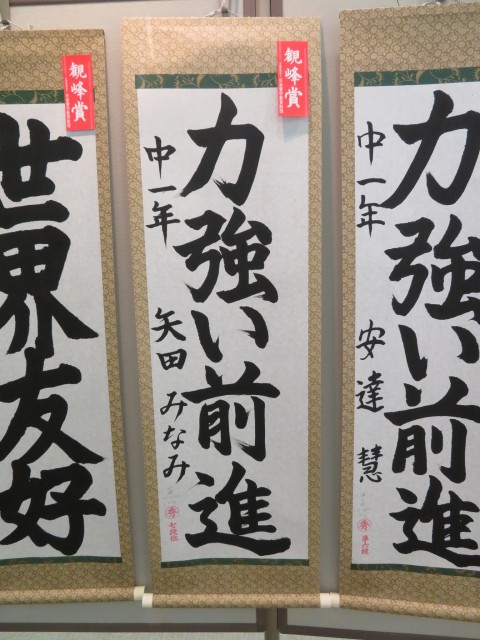 世界友好
観峰賞
力強い前進
中一年 矢田 みなみ
七段位
観峰賞
力強い前進
中一年 安達 慧